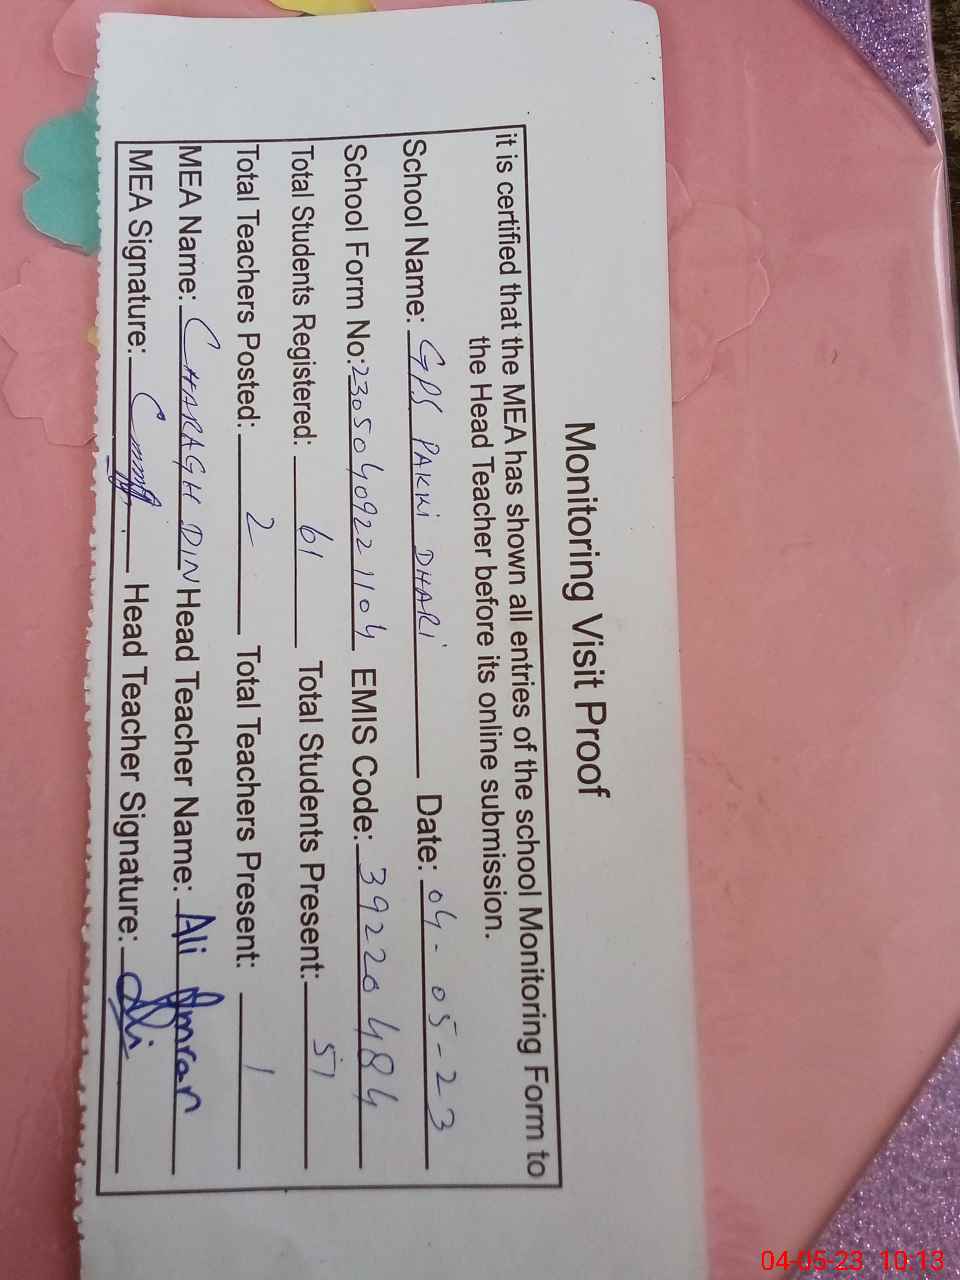 Monitoring Visit Proof
it is certified that the MEA has shown all entries of the school Monitoring Form to
the Head Teacher before its online submission.
School Name: GPS PAKKI DHARI Date: 04-05-23
School Form No: 23050409221104 EMIS Code: 39220484
Total Students Registered: 61 Total Students Present: 51
Total Teachers Posted: 2 Total Teachers Present: 1
MEA Name: CHARAGH DIN Head Teacher Name: Ali Imran
MEA Signature: Head Teacher Signature: Ali
04-05-23 10:13